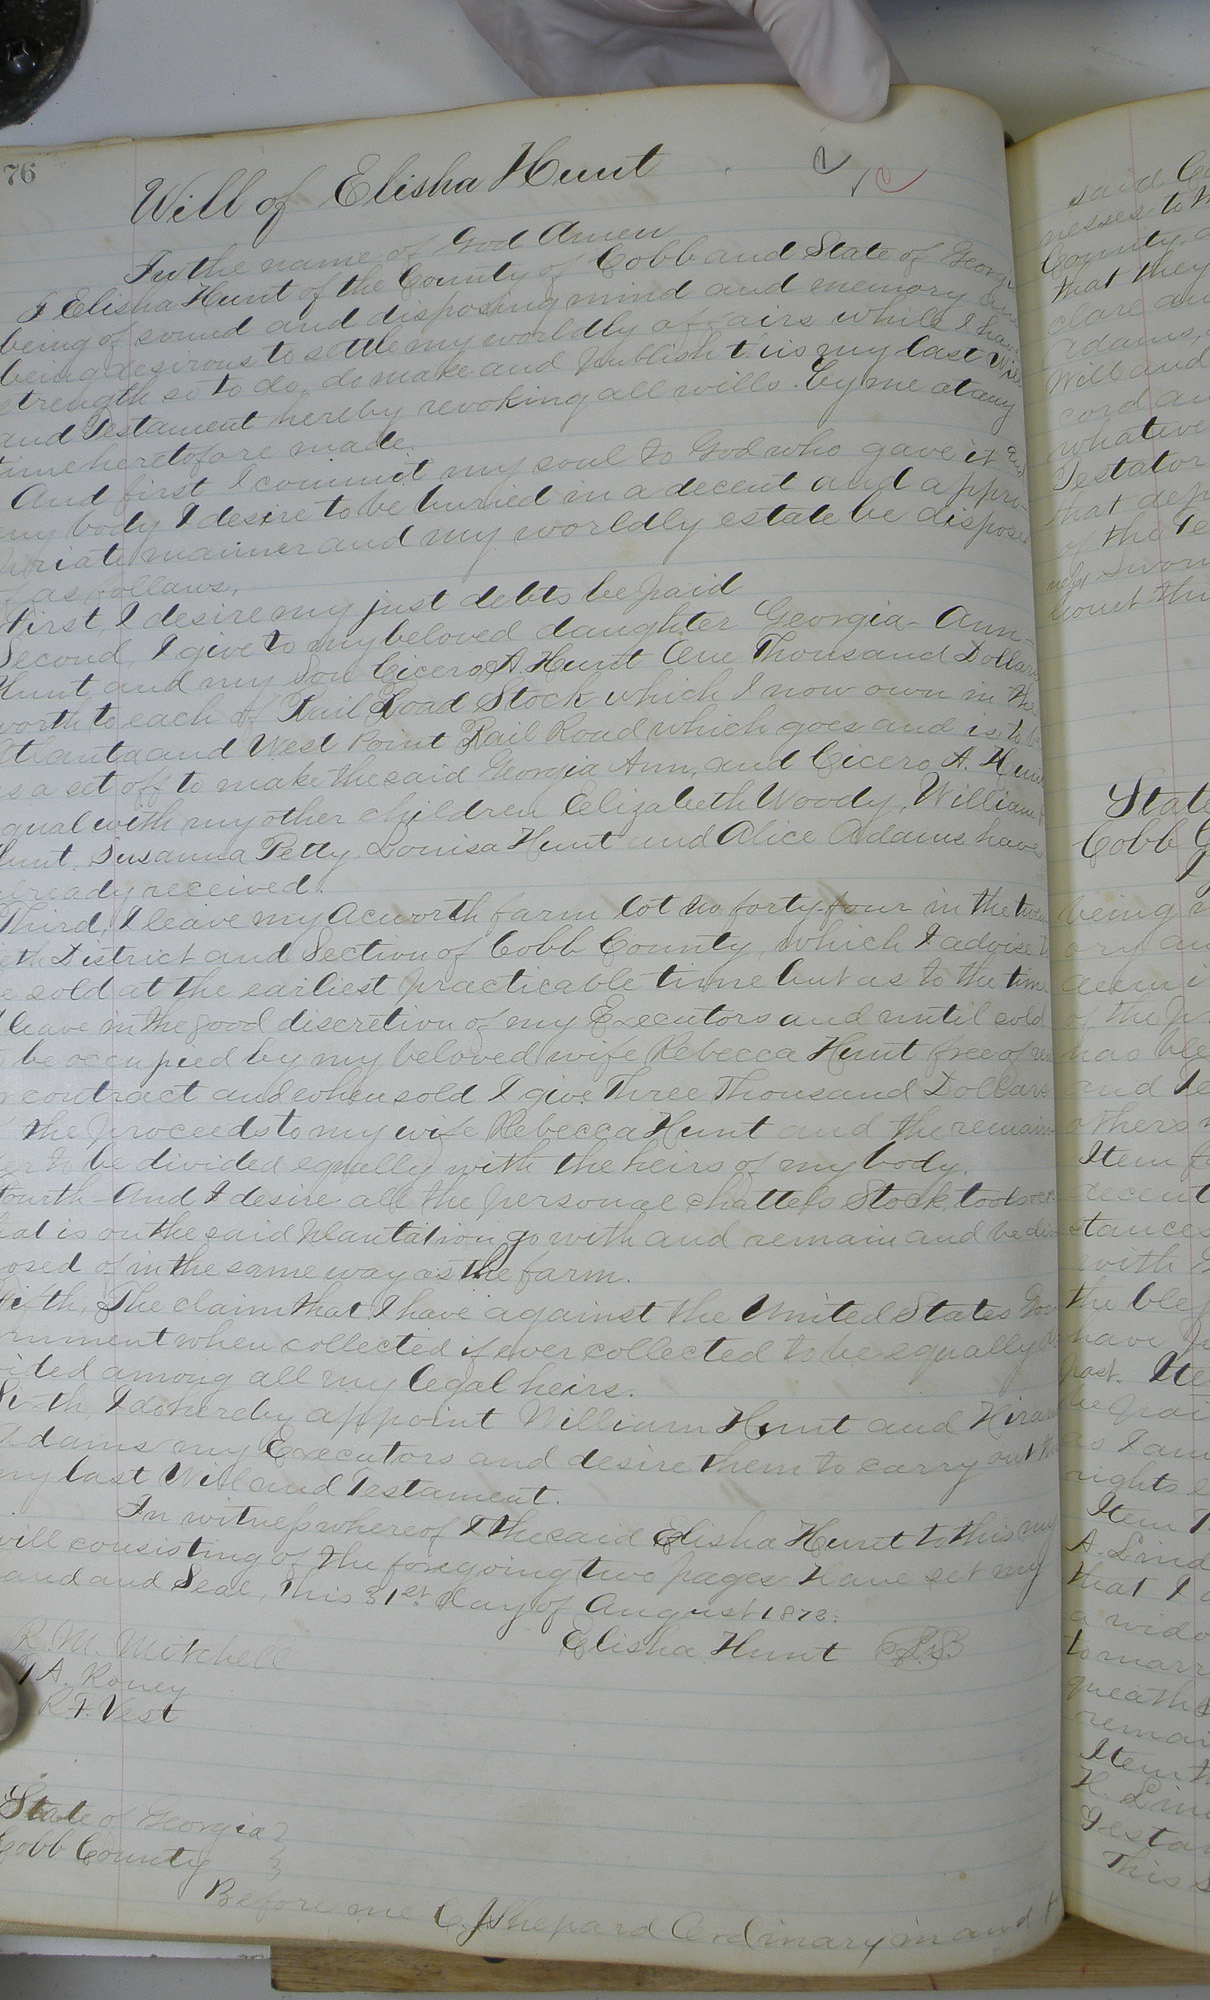 76
Will of Elisha Hunt
In the name of God Amen
I Elisha Hunt of the County of Cobb and State of Georgia
being of sound and disposing mind and memory and
being desirous to settle my worldly affairs while I have
strength so to do, do make and publish this my last Will
and Testament hereby revoking all wills by me at any
time heretofore made.
And first I commit my soul to God who gave it and
my body I desire to be buried in a decent and appro-
priate manner and my worldly estate be disposed
of as follows,
First, I desire my just debts be paid
Second, I give to my beloved daughter Georgia-Ann-
Hunt, and my Son Cicero A. Hunt One Thousand Dollars
worth to each of Rail Road Stock which I now own in the
Atlanta and West Point Rail Road which goes and is to be
as a set off to make the said Georgia Ann, and Cicero A. Hunt
equal with my other children Elizabeth Woody, William
Hunt, Susanna Petty, Louisa Hunt and Alice Adams have
already received.
Third, I leave my Acworth farm lot no forty-four in the
District and Section of Cobb County, which I advise to
be sold at the earliest practicable time but as to the time
I leave in the good discretion of my Executors and until sold
be occupied by my beloved wife Rebecca Hunt free of
or contract and when sold I give Three Thousand Dollars
of the proceeds to my wife Rebecca Hunt and the remain-
der to be divided equally with the heirs of my body.
Fourth And I desire all the personal chattels Stock, tools
that is on the said Plantation go with and remain and be dis
posed of in the same way as the farm.
Fifth, The claim that I have against the United States Gov
ernment when collected if ever collected to be equally di
vided among all my legal heirs.
Sixth, I do hereby appoint William Hunt and Hiram
Adams my Executors and desire them to carry out this
my last Will and Testament.
In witness whereof I the said Elisha Hunt to this my
will consisting of the foregoing two pages have set my
hand and Seal, this 31st day of August 1872.
Elisha Hunt L.S.
R. M. Mitchell
A. Roney
R. F. Vest
State of Georgia
Cobb County
Before me C J Shepard Ordinary in and
said Co
nesses to
County,
that they
clare an
Adams,
Will and
cord an
whateve
Testator
that dep
of the Te
Sworn
Court th
State
Cobb C
being
ory an
of the
has ble
and Te
others
Item
decent
stances
with
the ble
have
past. Ite
be pai
as I am
rights
Item
A. Lind
that I
a wido
to marr
queath
remai
Item
H. Lin
Testa
This